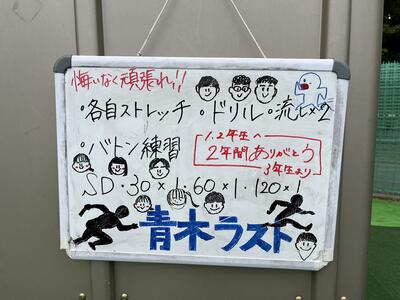 悔いなく頑張れ!!
・各自ストレッチ ・ドリル ・流し×2
・バトン練習
1.2年生へ
2年間ありがとう
3年生より
SD・30×1・60×1・120×1
青木ラスト